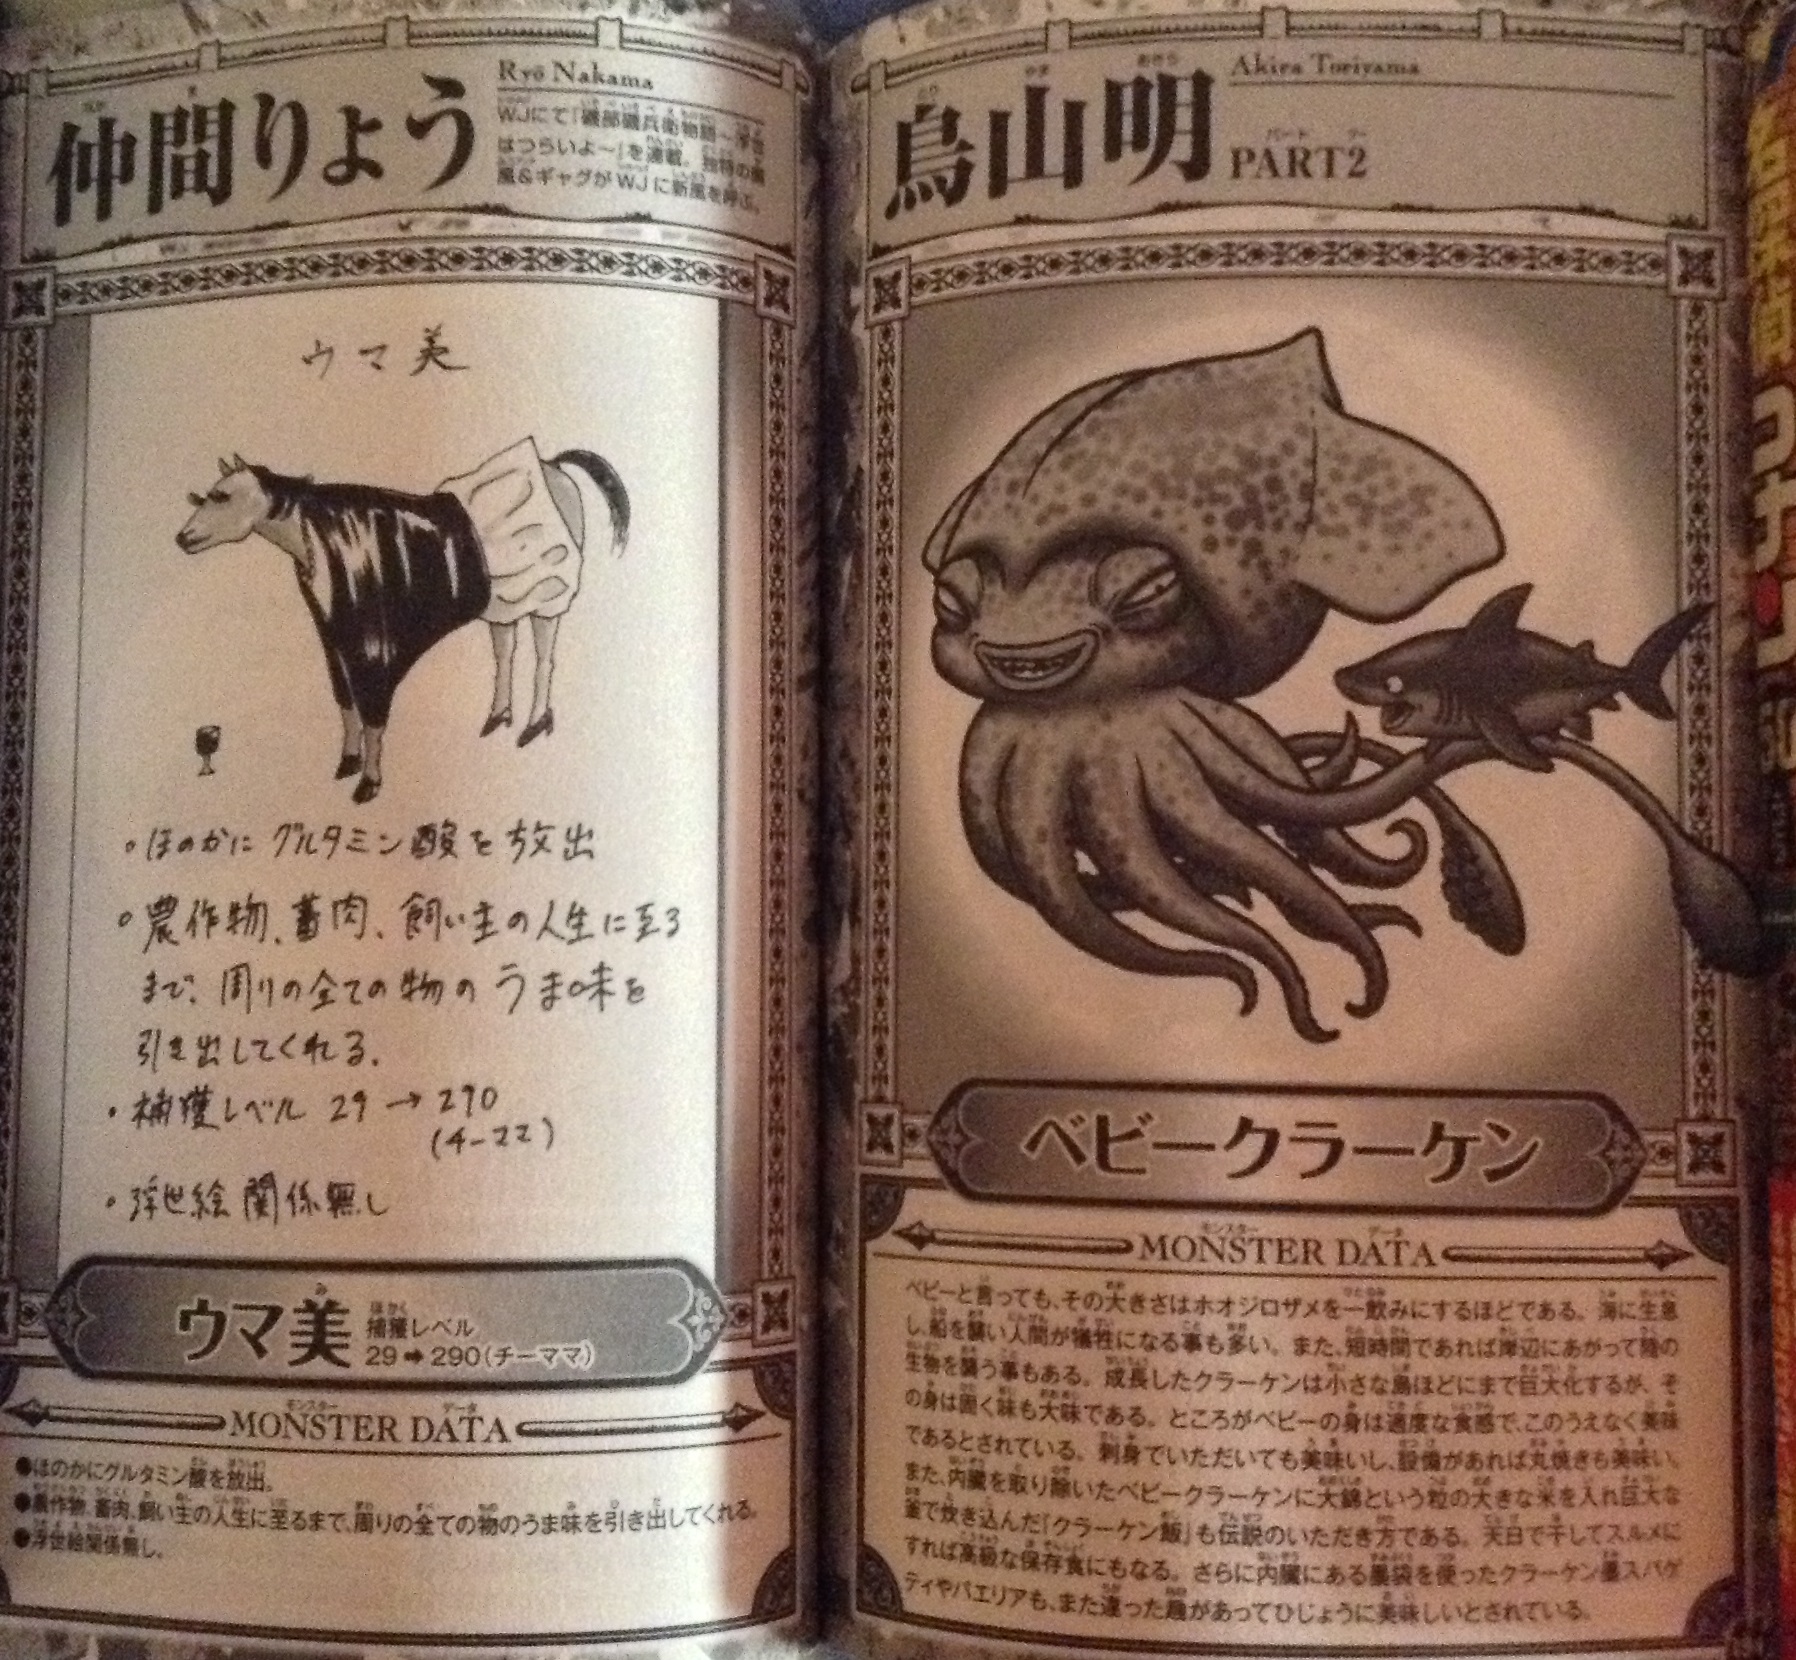 仲間りょう
Ryō Nakama
WJにて『磯部磯兵衛物語〜浮世
はつらいよ〜』を連載。独特の画
風&ギャグがWJに新風を呼ぶ。
ウマ美
・ほのかにグルタミン酸を放出
・農作物、畜肉、飼い主の人生に至る
まで、周りの全ての物のうま味を
引き出してくれる。
・捕獲レベル 29→290
(チーママ)
・浮世絵関係無し
ウマ美
捕獲レベル
29➡290(チーママ)
MONSTER DATA
●ほのかにグルタミン酸を放出。
●農作物、畜肉、飼い主の人生に至るまで、周りの全ての物のうま味を引き出してくれる。
●浮世絵関係無し。
鳥山明
Akira Toriyama
PART2
ベビークラーケン
MONSTER DATA
ベビーと言っても、その大きさはホオジロザメを一飲みにするほどである。海に生息
し、船を襲い人間が犠牲になる事も多い。また、短時間であれば岸辺にあがって陸の
生物を襲う事もある。成長したクラーケンは小さな島ほどにまで巨大化するが、そ
の身は固く味も大味である。ところがベビーの身は適度な食感で、このうえなく美味
であるとされている。刺身でいただいても美味いし、設備があれば丸焼きも美味い。
また、内臓を取り除いたベビークラーケンに大錦という粒の大きな米を入れ巨大な
釜で炊き込んだ「クラーケン飯」も伝説のいただき方である。天日で干してスルメに
すれば高級な保存食にもなる。さらに内臓にある墨袋を使ったクラーケン墨スパゲ
ティやパエリアも、また違った趣があってひじょうに美味しいとされている。